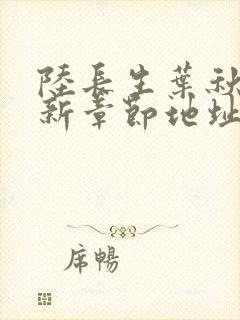 陸長生葉秋
新章節地址
席暢